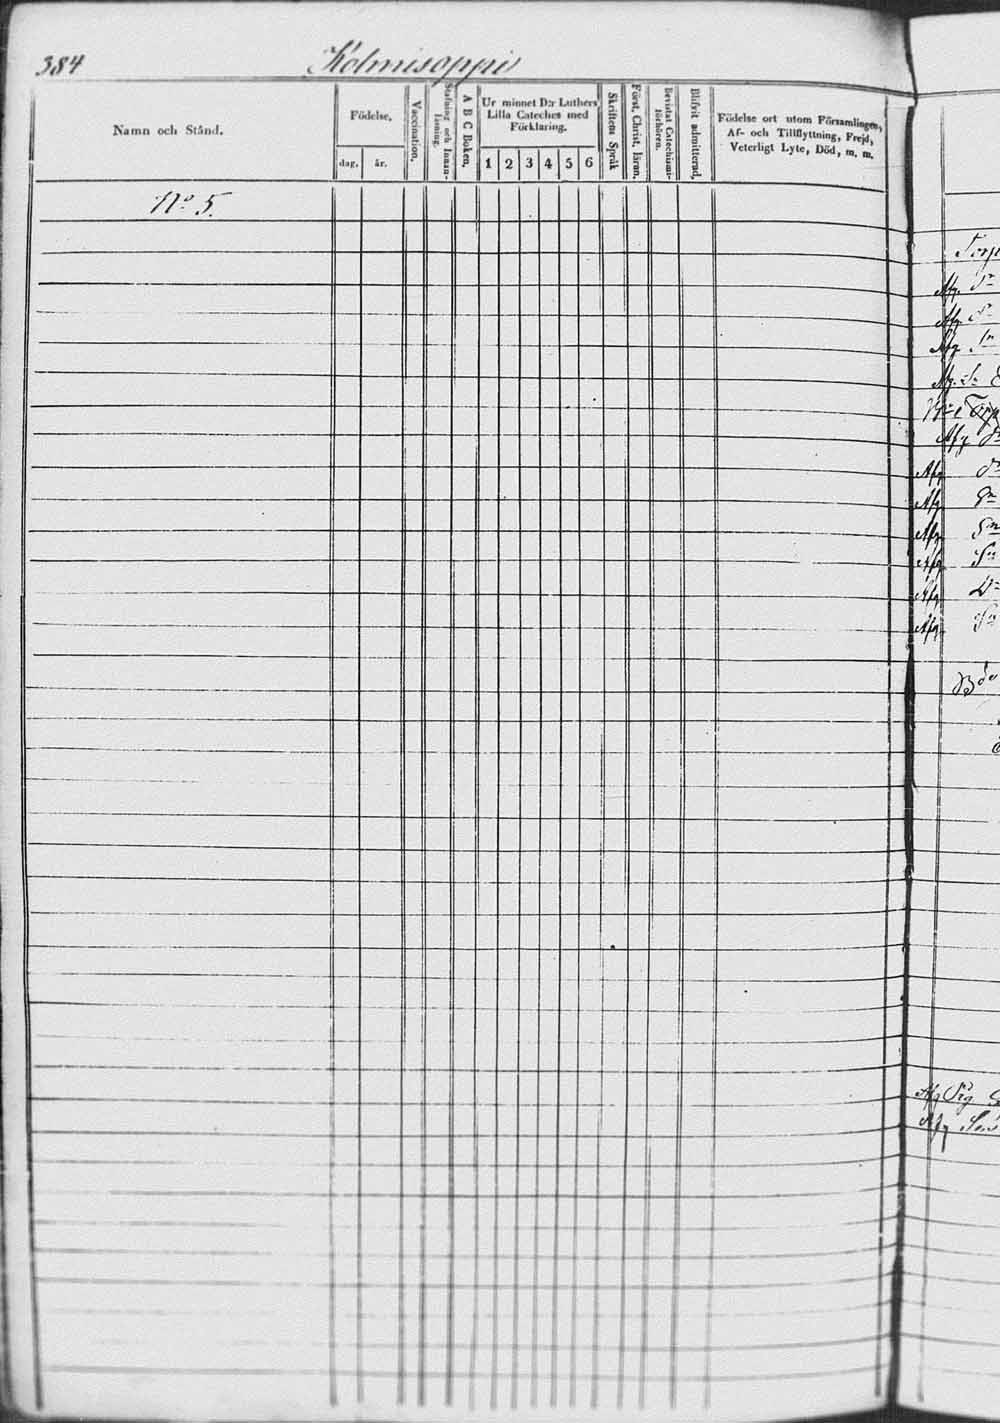 384 Kolmisoppi
Namn och Stånd.
Födelse,
dag, år.
Vaccination.
Stafning och Innan-
läsning.
A B C Boken.
Ur minnet D:r Luthers
Lilla Cateches med
Förklaring.
1 2 3 4 5 6
Skriftens Språk
Först. Christ. läran.
Bevistat Catechismi-
förhören.
Blifvit admitterad,
Födelse ort utom Församlingen,
Af- och Tillflyttning, Frejd,
Veterligt Lyte, Död, m. m.
No 5.
Afg.
Afg.
Afg.
Afg.
Afg
Afg
Afg
Afg
Afg
Afg
Afg
Afg
Afg